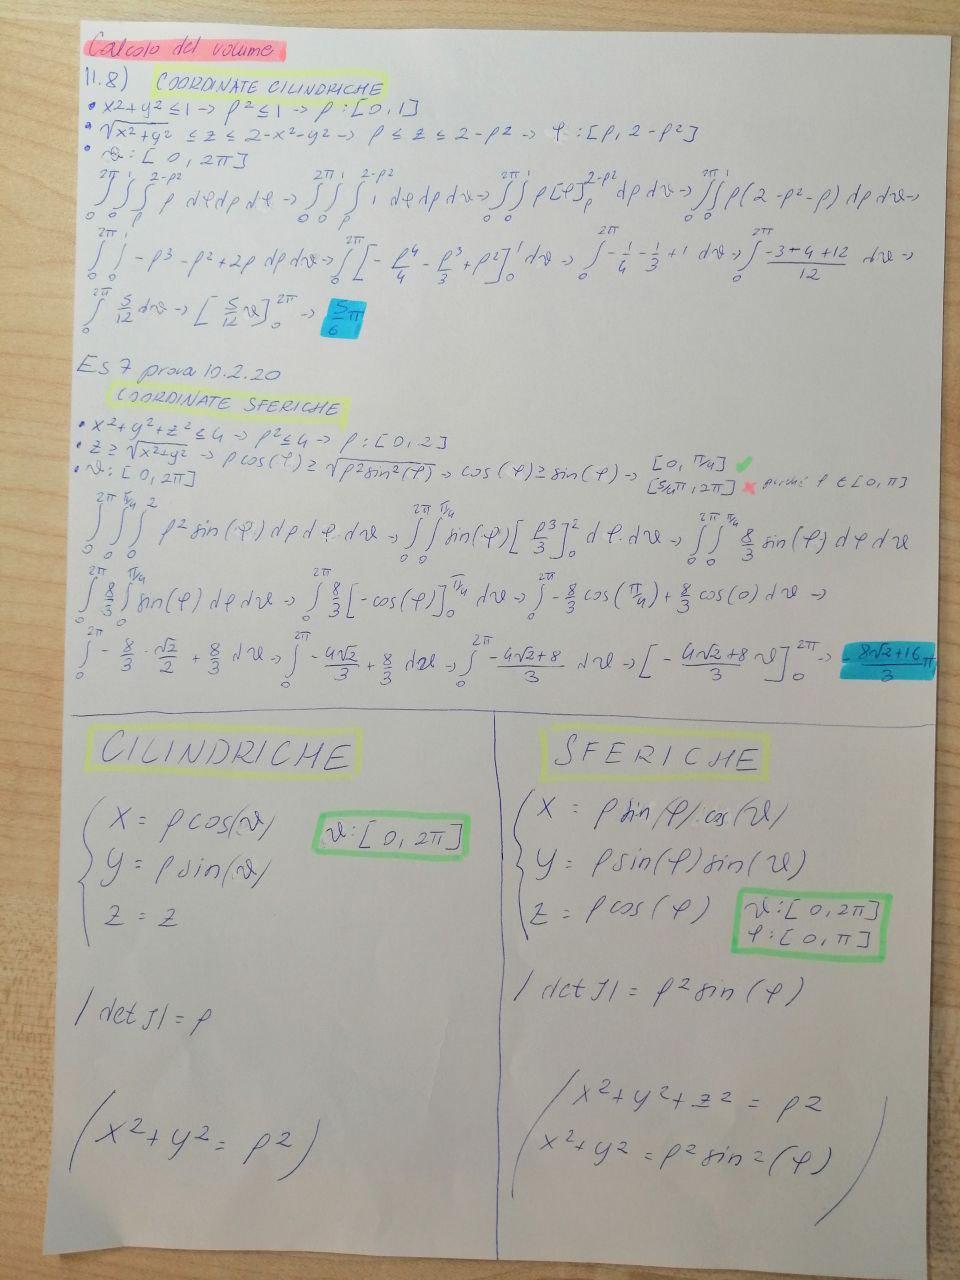 Calcolo del volume
11.8) COORDINATE CILINDRICHE
• x²+y² ≤ 1 → ρ² ≤ 1 → ρ : [0,1]
• √x²+y² ≤ z ≤ 2-x²-y² → ρ ≤ z ≤ 2-ρ² → φ : [ρ, 2-ρ²]
• ϑ : [0, 2π]
∫₀^2π ∫₀^1 ∫ρ^2-ρ² ρ dφ dρ dφ → ∫₀^2π ∫₀^1 ∫ρ^2-ρ² 1 dφ dρ dϑ → ∫₀^2π ∫₀^1 ρ[φ]ρ^2-ρ² dρ dϑ → ∫₀^2π ∫₀^1 ρ(2-ρ²-ρ) dρ dϑ →
∫₀^2π ∫₀^1 -ρ³-ρ²+2ρ dρ dϑ → ∫₀^2π [-ρ⁴/4 - ρ³/3 + ρ²]₀^1 dϑ → ∫₀^2π -1/4 - 1/3 + 1 dϑ → ∫₀^2π -3-4+12/12 dϑ →
∫₀^2π 5/12 dϑ → [5/12 ϑ]₀^2π → 5/6 π
Es 7 prova 10.2.20
COORDINATE SFERICHE
• x²+y²+z² ≤ 4 → ρ² ≤ 4 → ρ : [0,2]
• z ≥ √x²+y² → ρcos(φ) ≥ √ρ²sin²(φ) → cos(φ) ≥ sin(φ) → [0, π/4] ✓
[5/4π, 2π] × perché φ ∈ [0, π]
• ϑ : [0, 2π]
∫₀^2π ∫₀^π/4 ∫₀^2 ρ² sin(φ) dρ dφ dϑ → ∫₀^2π ∫₀^π/4 sin(φ) [ρ³/3]₀^2 dφ dϑ → ∫₀^2π ∫₀^π/4 8/3 sin(φ) dφ dϑ
∫₀^2π 8/3 ∫₀^π/4 sin(φ) dφ dϑ → ∫₀^2π 8/3 [-cos(φ)]₀^π/4 dϑ → ∫₀^2π -8/3 cos(π/4) + 8/3 cos(0) dϑ →
∫₀^2π -8/3 · √2/2 + 8/3 dϑ → ∫₀^2π -4√2/3 + 8/3 dϑ → ∫₀^2π -4√2+8/3 dϑ → [-4√2+8/3 ϑ]₀^2π → -8√2+16/3 π
CILINDRICHE
x = ρcos(ϑ)
ϑ : [0, 2π]
y = ρsin(ϑ)
z = z
|det J| = ρ
(x²+y² = ρ²)
SFERICHE
x = ρsin(φ) cos(ϑ)
y = ρsin(φ)sin(ϑ)
z = ρcos(φ)
ϑ : [0, 2π]
φ : [0, π]
|det J| = ρ² sin(φ)
(x²+y²+z² = ρ²
x²+y² = ρ²sin²(φ))